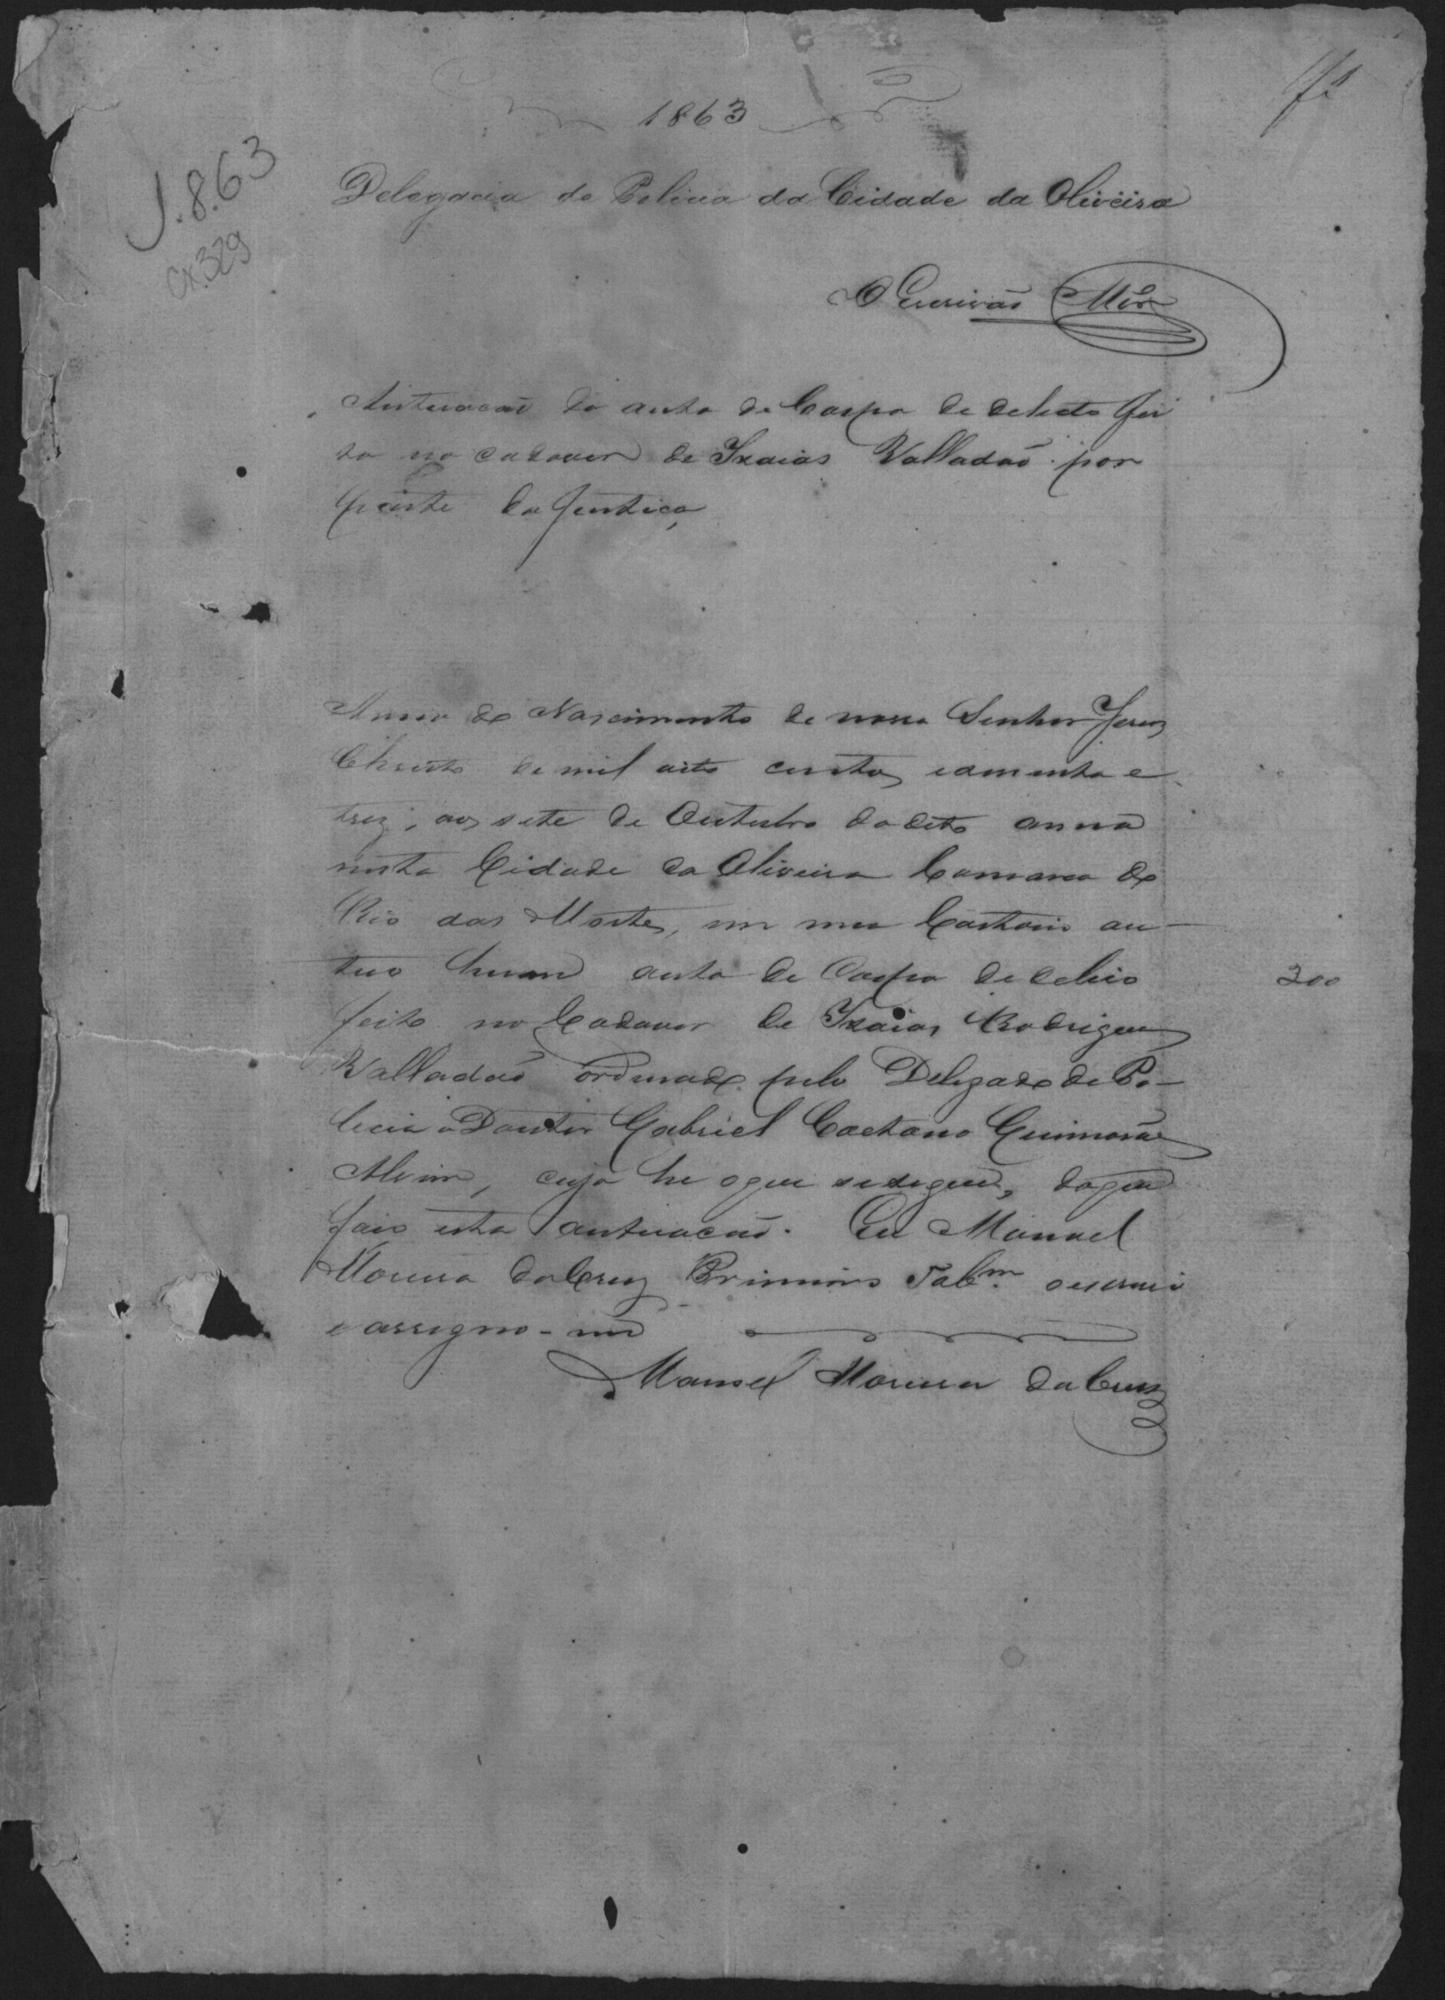 1863
J.863
cx.329
Delegacia de Policia da Cidade da Oliveira
O Escrivaõ
Autuacaõ do auto de Corpo de delicto fei
to no cadaver de Izaias Valladaõ por
parte da Justiça
Anno do Nascimento de nosso Senhor Jesuz
Christo de mil oito centos e
trez, aos sete de Outubro do dito anno
nesta Cidade da Oliveira Comarca do
Rio das Mortes, em meu Cartorio au-
tuo hum auto de Corpo de delicio
200
feito no Cadaver de Izaias Rodrigues
Valladaõ ordenado pelo Delegado de Po-
licia o Doutor Gabriel Caetano Guimarães
Alvim, cujo he oque sesegue, doque
faço esta autuacaõ. Eu Manoel
Moreira da Cruz Primeiro Tab.m oescrevi
e assigno-me
Manoel Moreira da Cruz